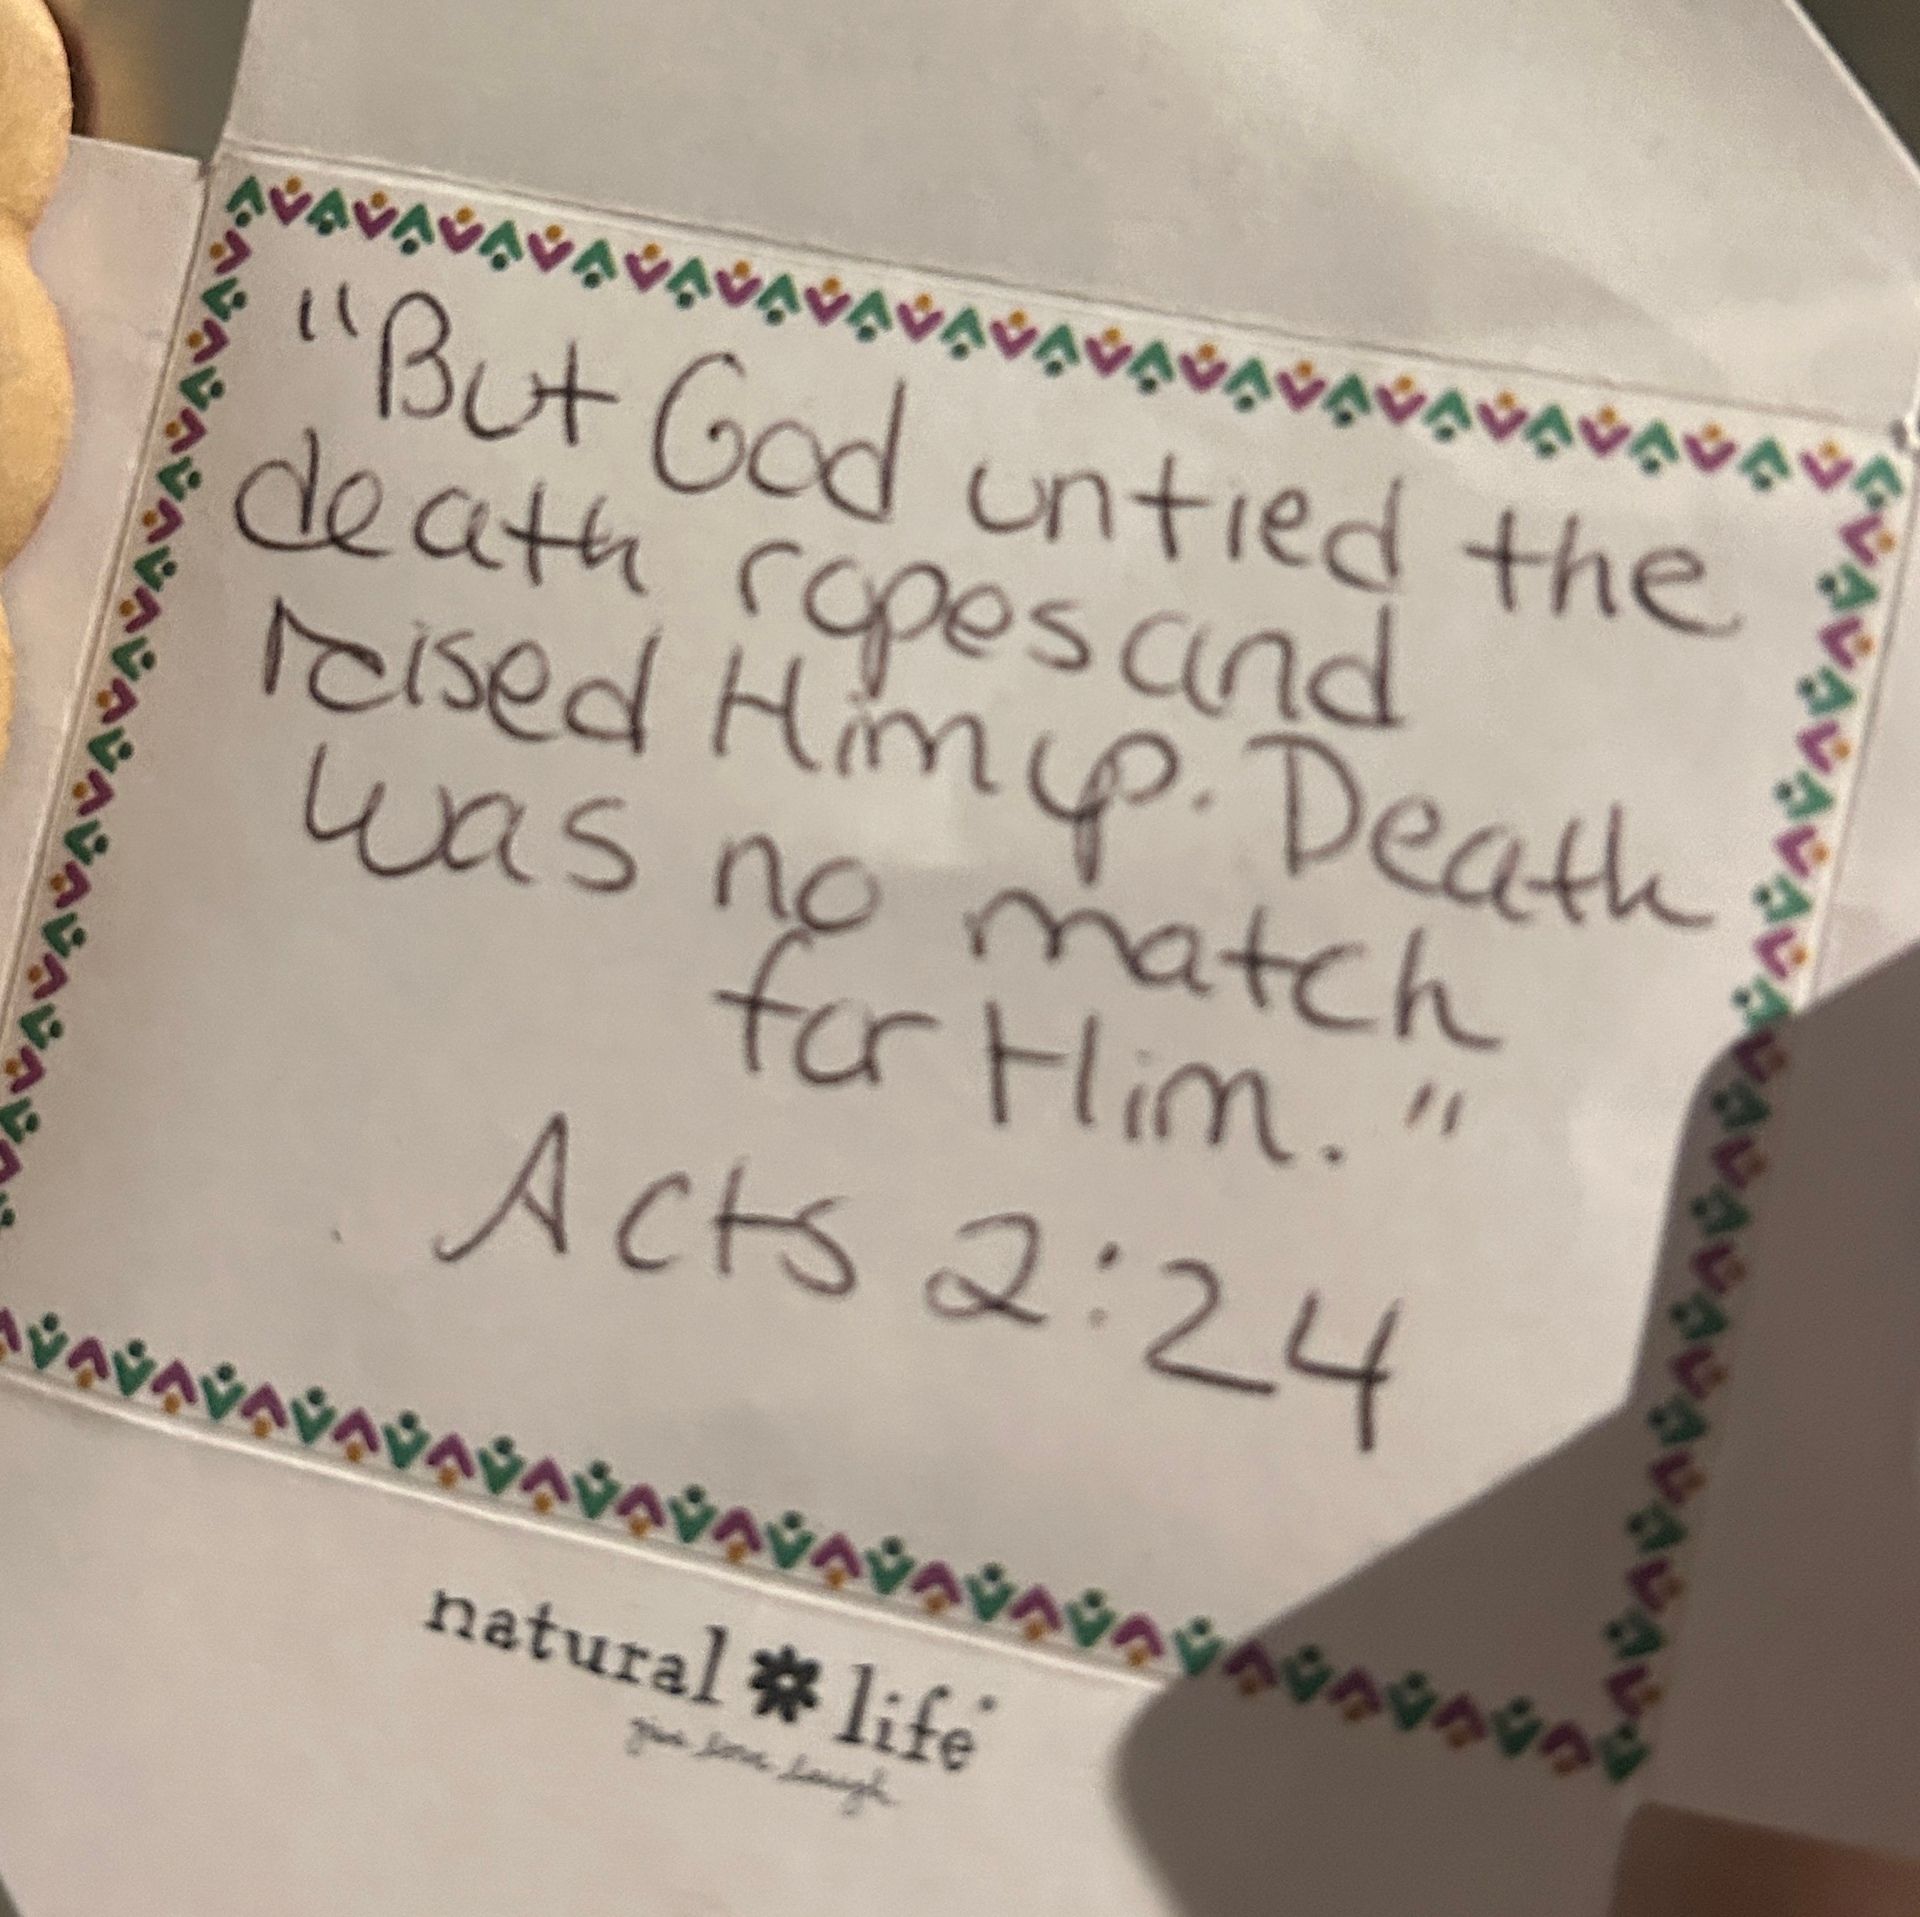 "But God untied the
death ropes and
raised Him up. Death
was no match
for Him."
Acts 2:24
natural life
give love laugh